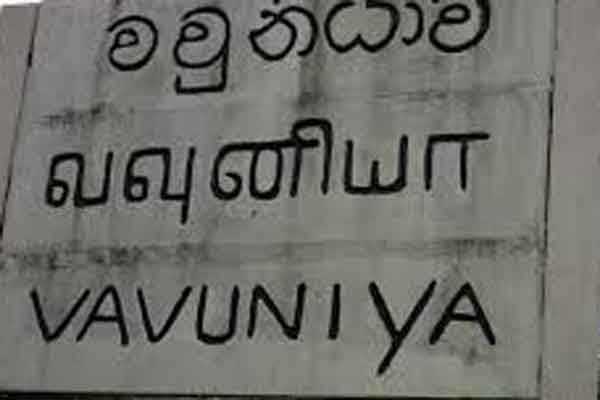 වවුනියාව
வவுனியா
VAVUNIYA